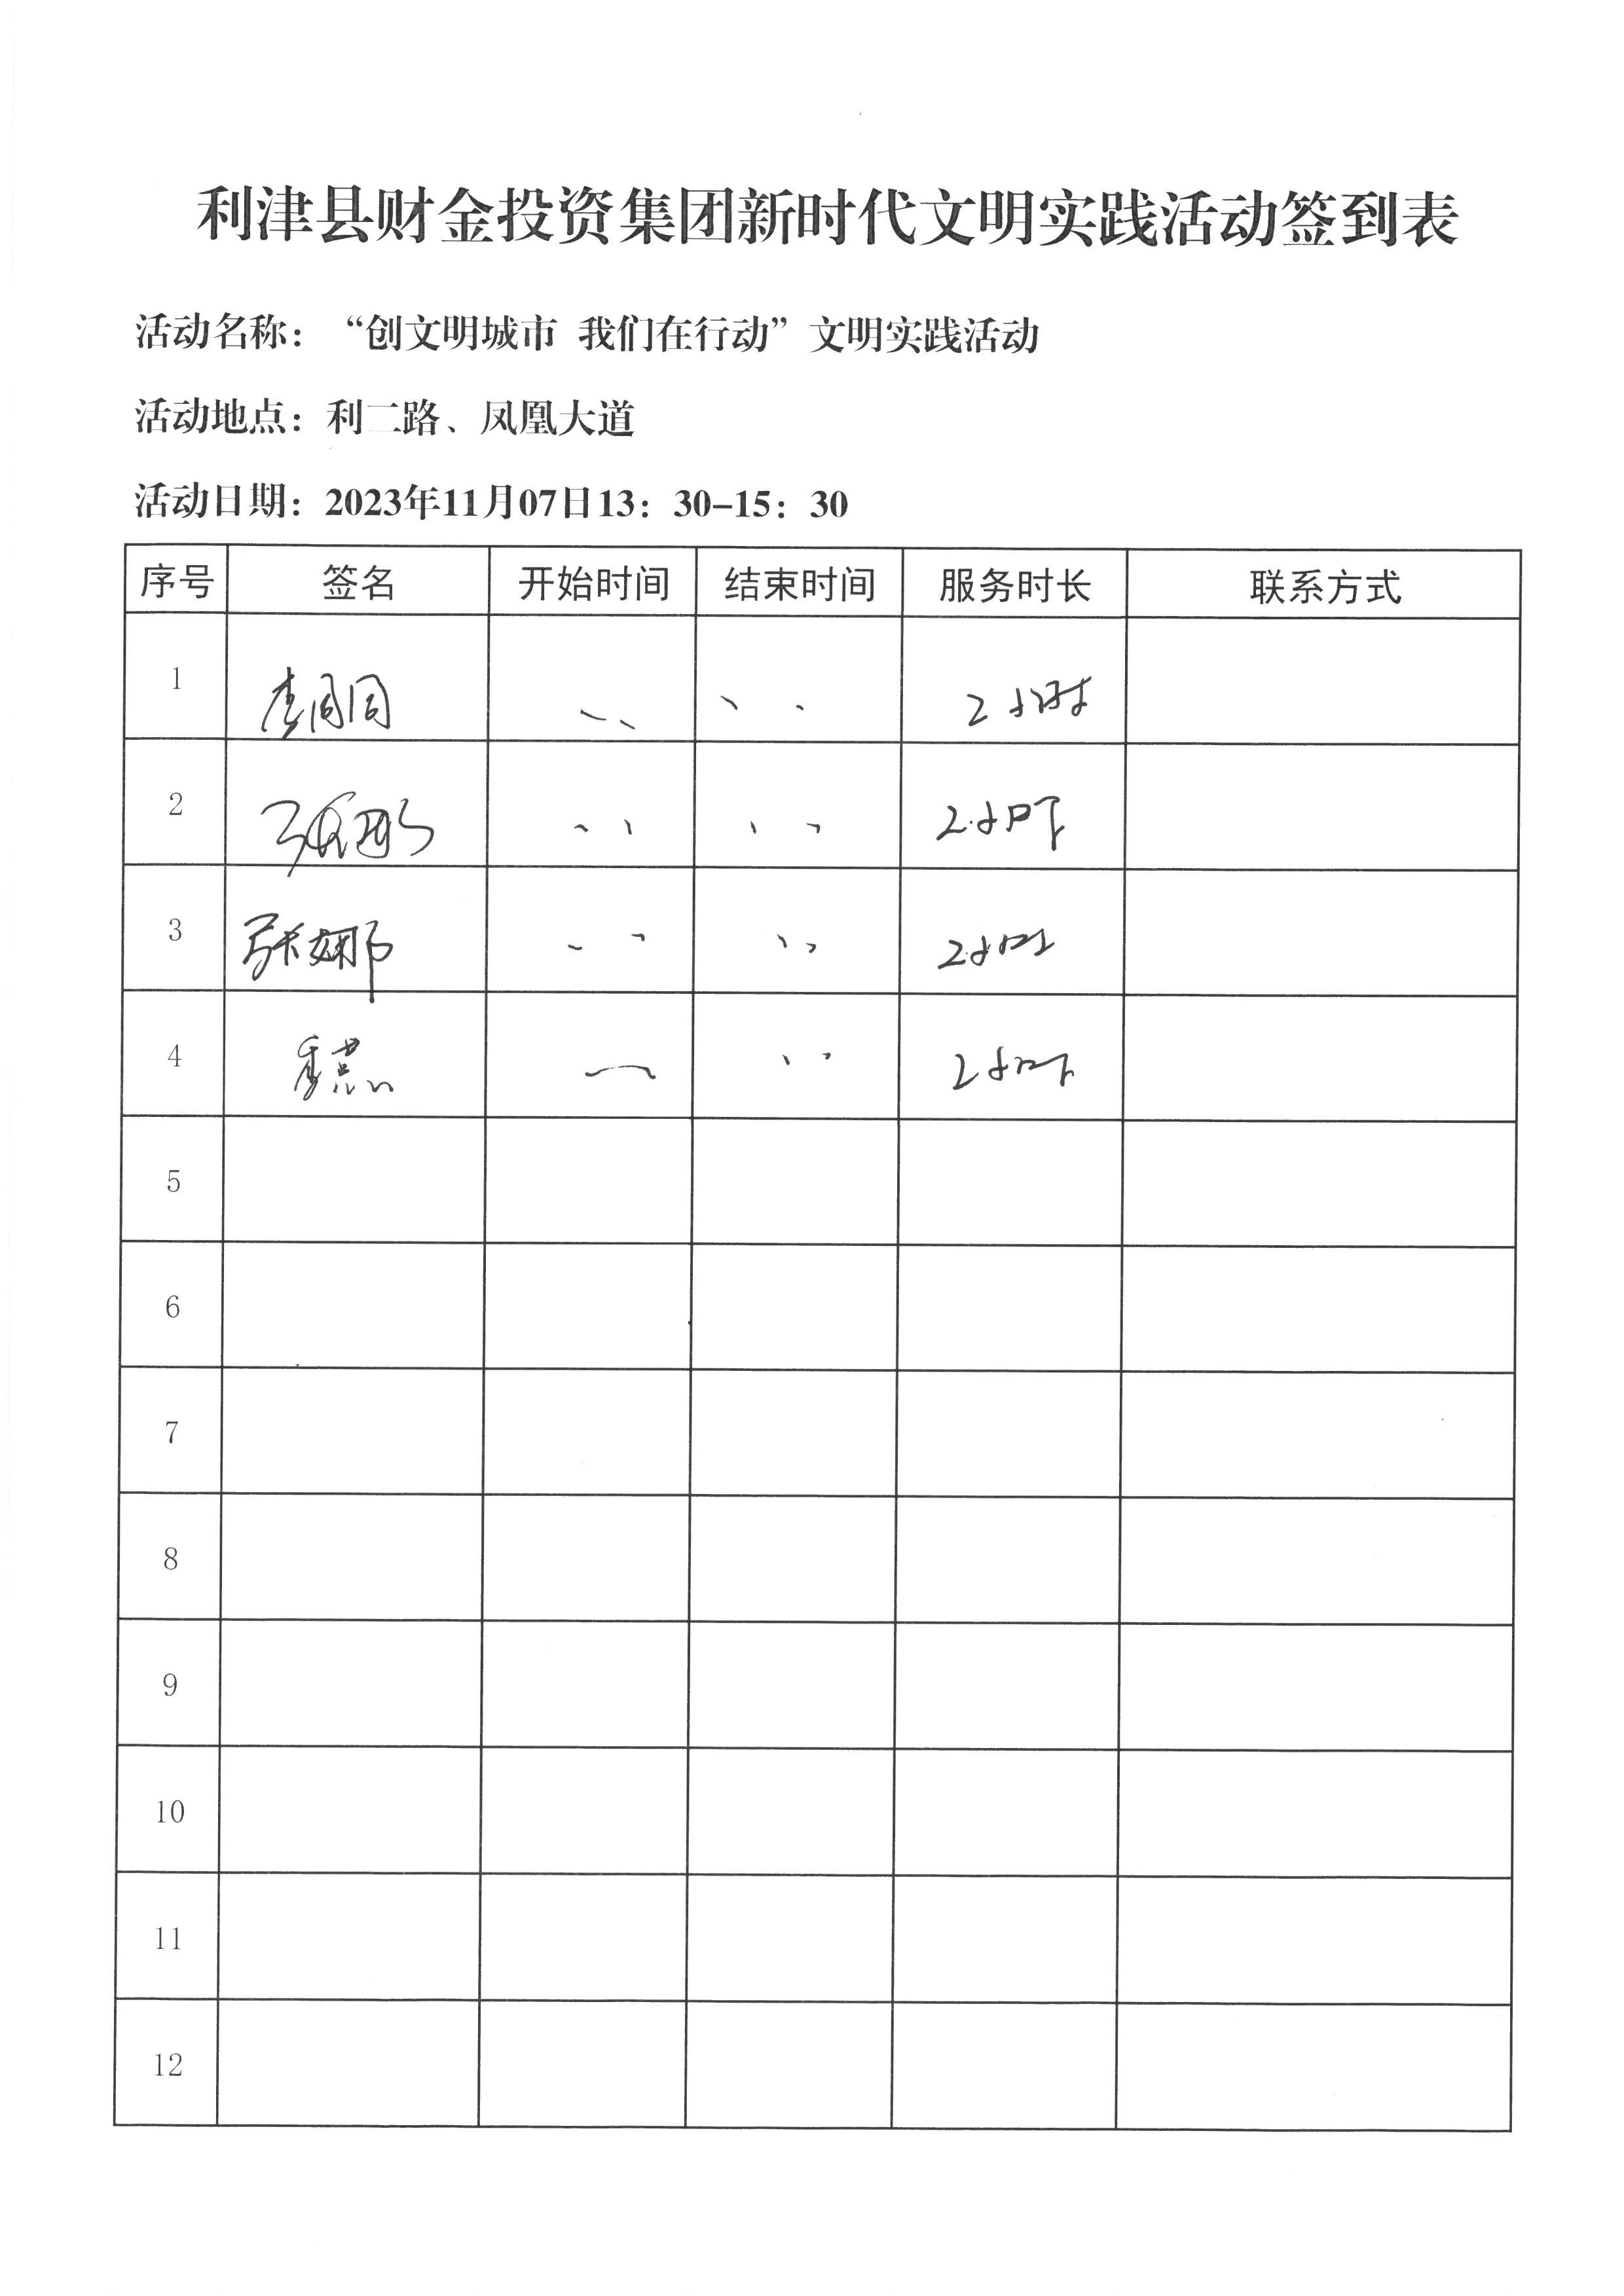 利津县财金投资集团新时代文明实践活动签到表
活动名称：“创文明城市 我们在行动”文明实践活动
活动地点：利二路、凤凰大道
活动日期：2023年11月07日13：30-15：30
序号 签名 开始时间 结束时间 服务时长 联系方式
1 李同同 2小时
2 2小时
3 张娜 2小时
4 2小时
5
6
7
8
9
10
11
12